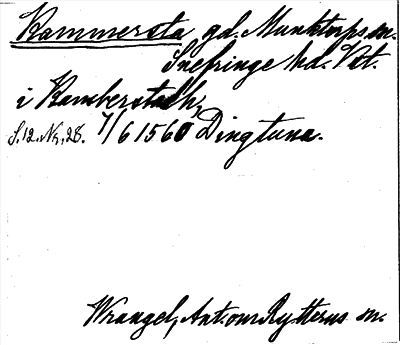 Kammersta gd. Munktorps sn.
Snefringe hd. Vst.
i Kamberstadh,
S. 12. Nr, 28. 7/6 1560 Dingtuna.
Wrangel, Ant. om Rytterns sn.